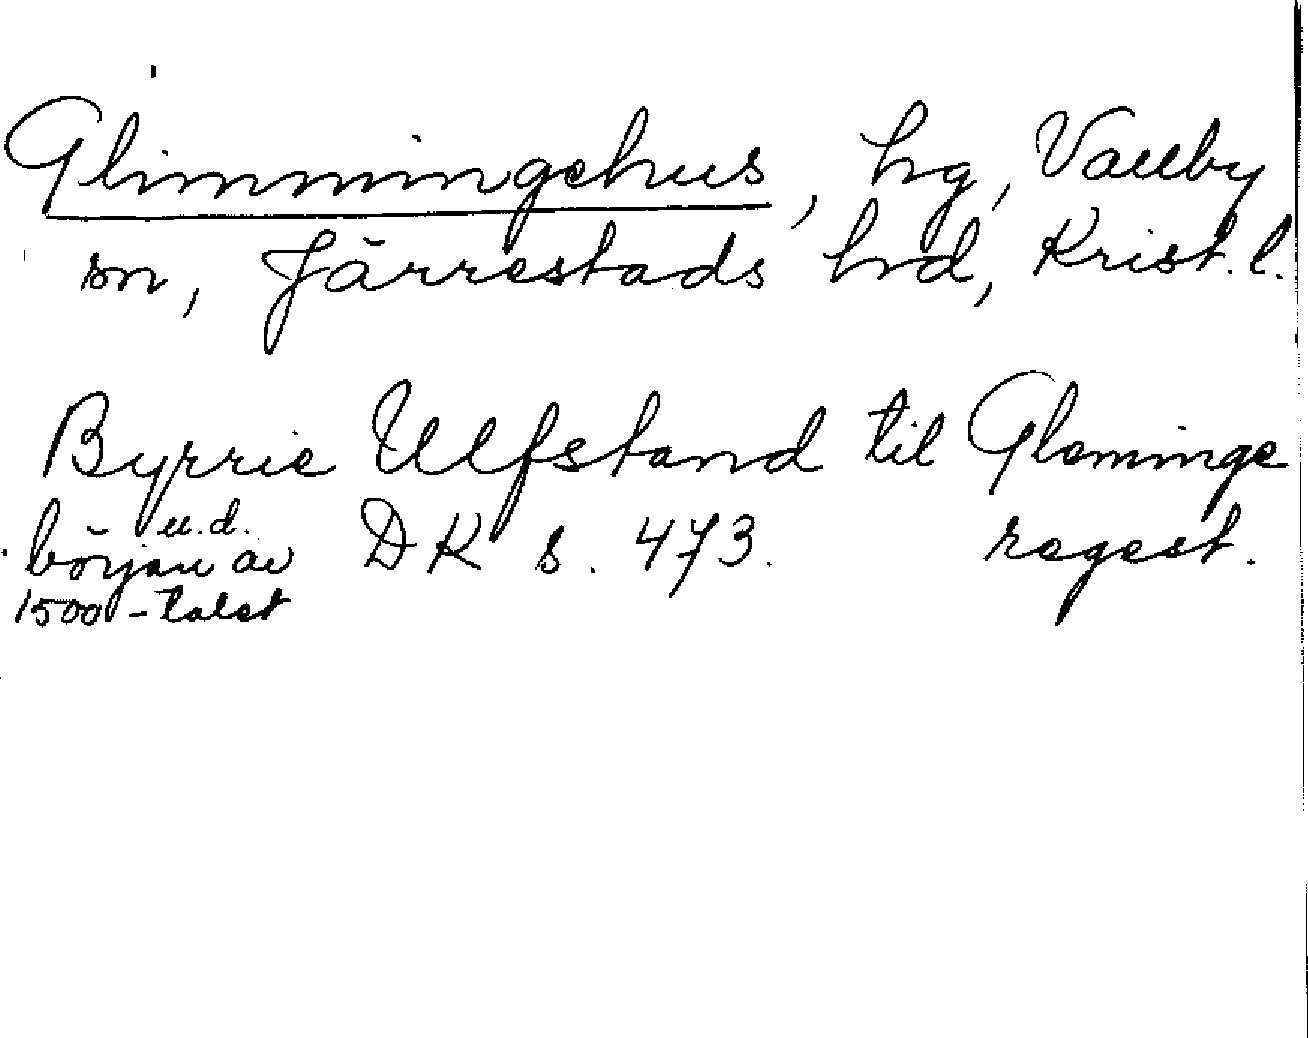 Glimmingehus, hg, Vallby
sn, Järrestads hd, Krist. l.
Byrrie Ulfstand til Gleminge
u.d.
början av DK s. 473. regest.
1500-talet